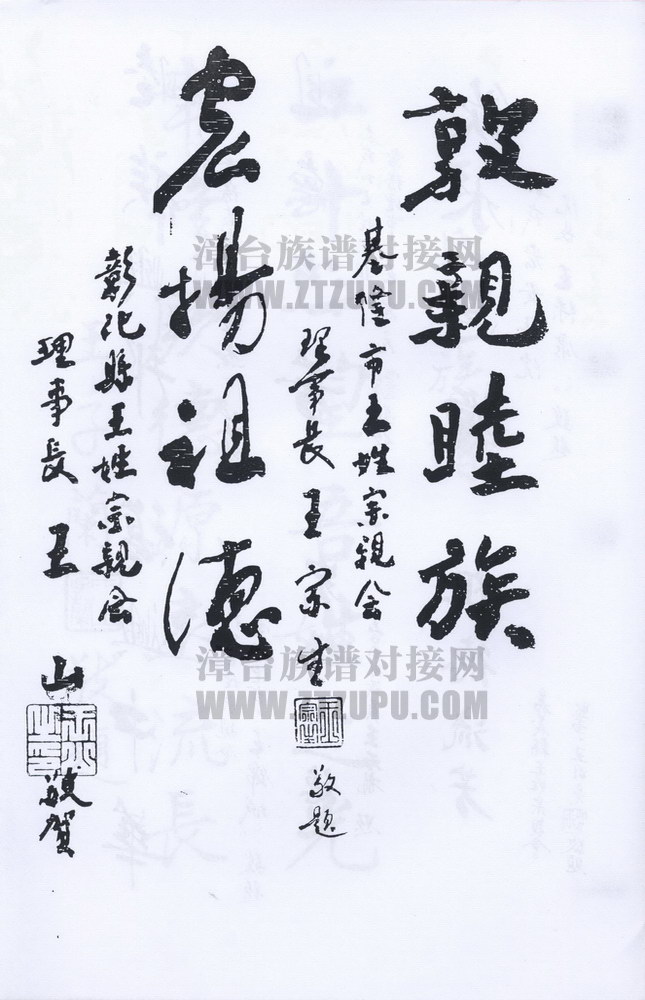 敦親睦族
基隆市王姓宗親会
理事長王宗生
敬題
宏揚祖德
彰化縣王姓宗親会
理事長王山
敬賀
漳台族谱对接网
WWW.ZTZUPU.COM
漳台族谱对接网
WWW.ZTZUPU.COM